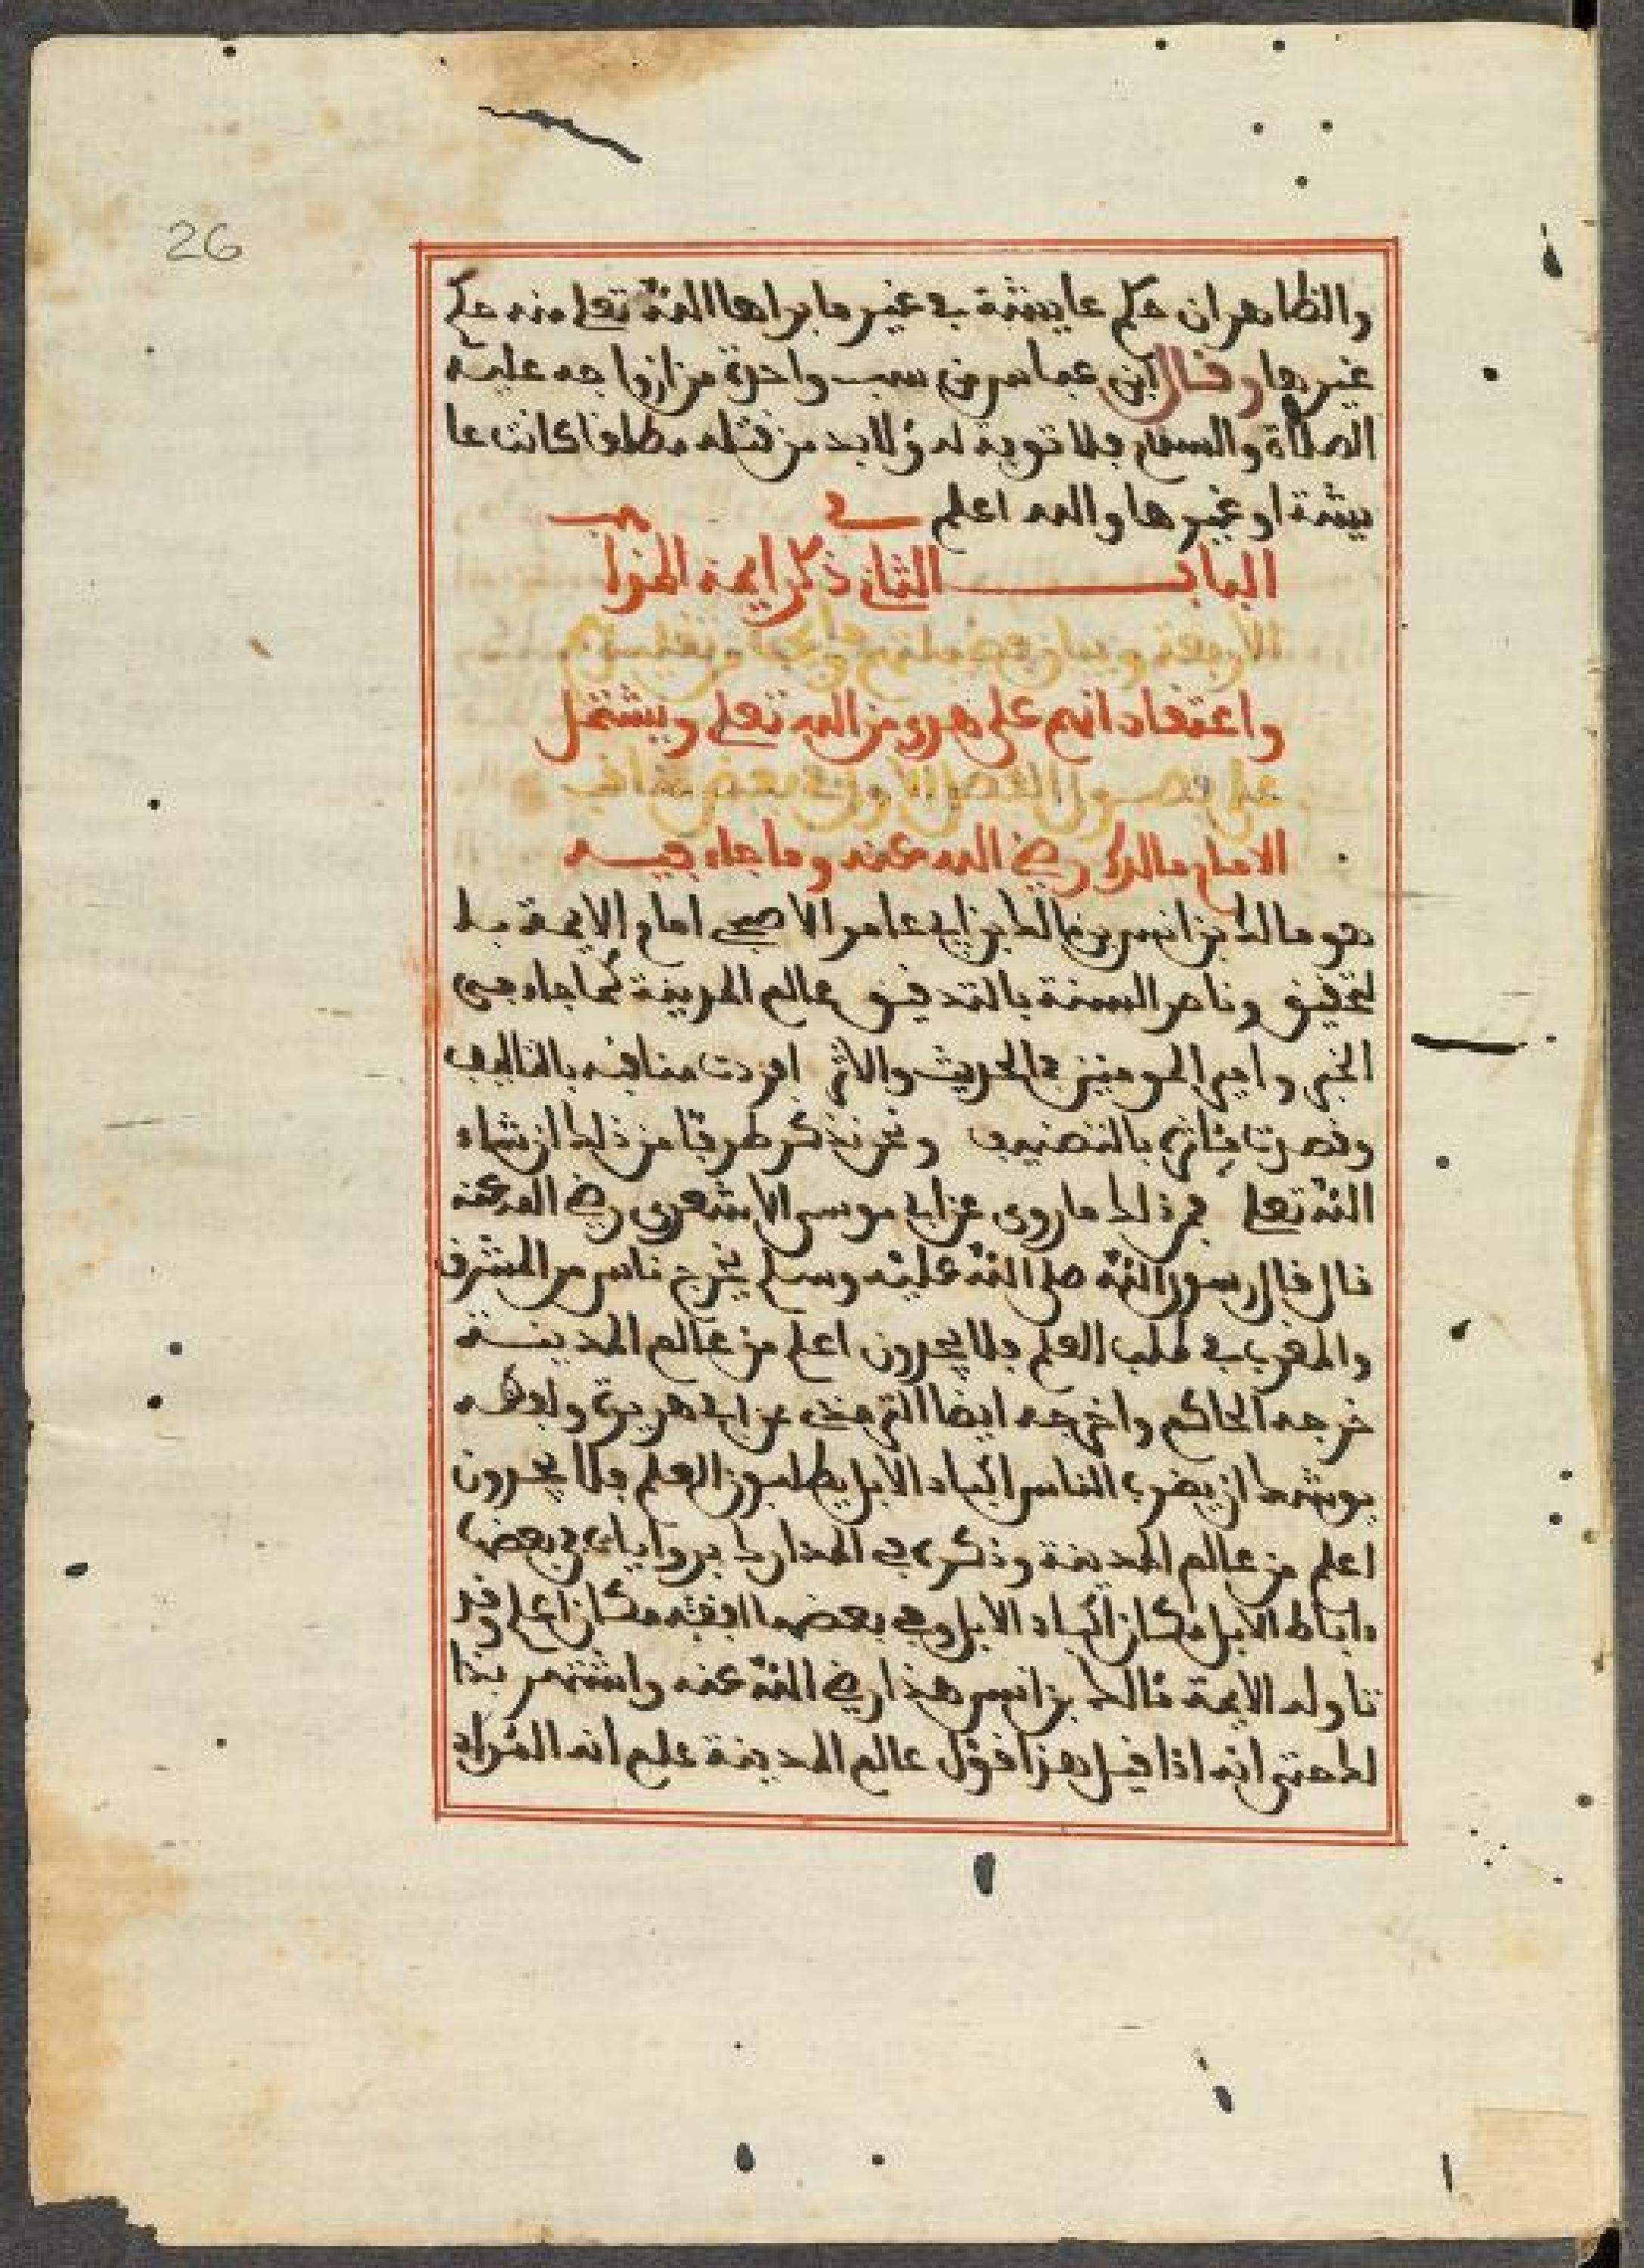 26
والظاهر ان حكم عايشة في غير ما براها الله تعلى منه حكم
غيرها وقال ابن عباس من سب واحدة من ازواجه عليه
الصلاة والسلام فلا توبة له ولابد من قتله مطلقا كانت عا
يشة او غيرها والله اعلم
في هب
الباب الثاني ذكر ايمة المذا
الاربعة وبيان فضيلتهم
واعتقاد انهم على هدى من الله تعلى ويشتمل
على فصول الفصل الاول في بعض مناقب
الامام مالك رضي الله عنه وما جاء فيه
هو مالك بن انس بن مالك بن ابي عامر الاصبحي امام الايمة با
لتحقيق وناصر السنة بالتدقيق عالم المدينة كما جاء في
الخبر وامير المومنين في الحديث والاثر افردت مناقبه بالتاليف
وقصرت مئاثره بالتصنيف ونحن نذكر طرفا من ذلك ان شاء
الله تعلى فمن ذلك ما روى عن ابي موسى الاشعري رضي الله عنه
قال قال رسول الله صلى الله عليه وسلم يخرج ناس من المشرق
والمغرب في طلب العلم فلا يجدون اعلم من عالم المدينة
خرجه الحاكم واخرجه ايضا الترمذي عن ابي هريرة ولفظه
يوشك ان يضرب الناس اكباد الابل يطلبون العلم فلا يجدون
اعلم من عالم المدينة وذكره في المدارك بروايات في بعضها
ءاباط الابل مكان اكباد الابل وفي بعضها افقه مكان اعلم وقد
تاوله الايمة مالك بن انس هذا رضي الله عنه واشتهر بذا
لك حتى انه اذا قيل هذا قول عالم المدينة علم انه المراد